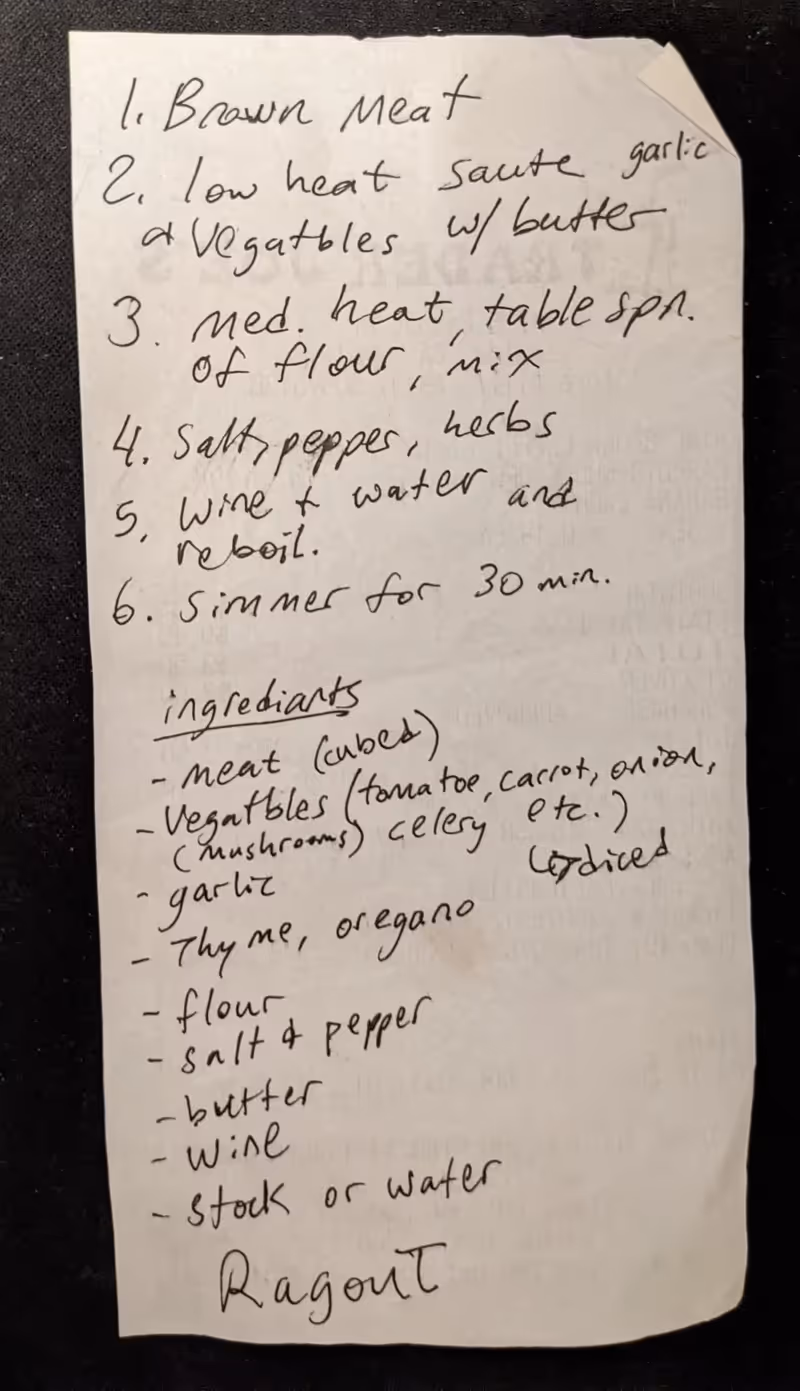 1. Brown Meat
2. low heat saute garlic
& Vegatbles w/ butter
3. med. heat, table spn.
of flour, mix
4. Salt, pepper, herbs
5. Wine + water and
reboil.
6. Simmer for 30 min.
ingrediants
- meat (cubed)
- Vegatbles (tomatoe, carrot, onion,
(mushrooms) celery etc.)
↳ diced
- garlic
- Thyme, oregano
- flour
- salt & pepper
- butter
- wine
- stock or water
Ragout